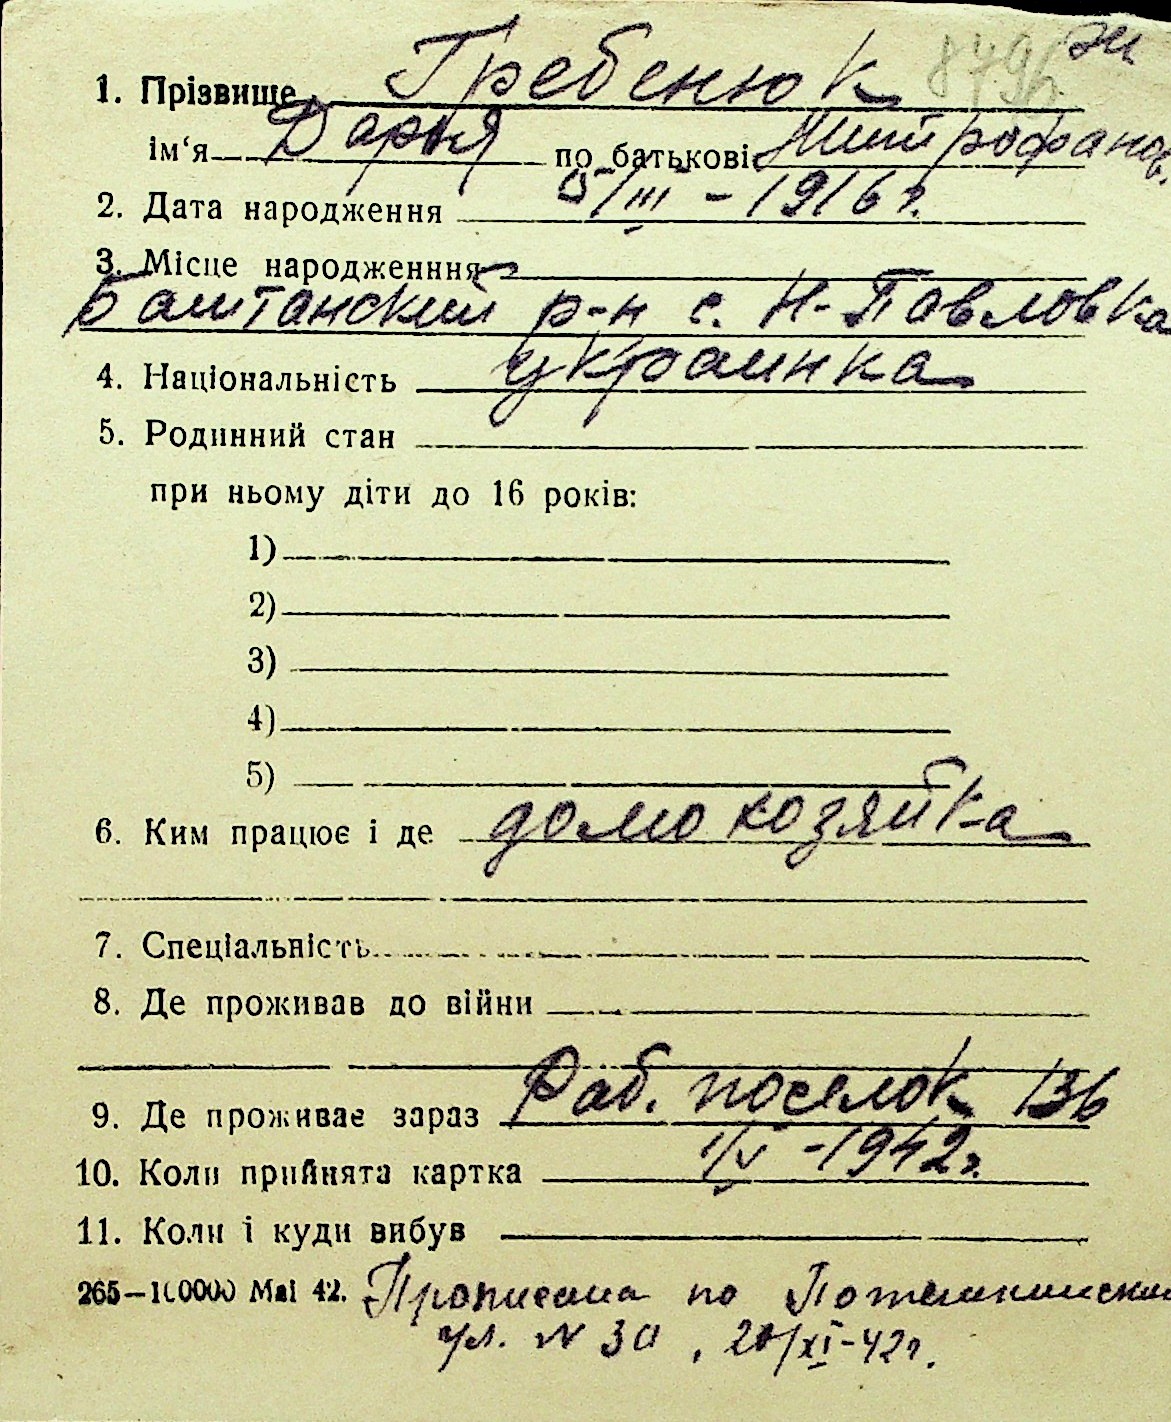 8796 эи
1. Прізвище Гребенюк
ім‘я Дарья по батькові Митрофанов.
2. Дата народження 5/III - 1916 г.
3. Місце народженння
Баштанский р-н с. Н-Павловка
4. Національність украинка
5. Родинний стан
при ньому діти до 16 років:
1)
2)
3)
4)
5)
6. Ким працює і де домохозяйка
7. Спеціальність
8. Де проживав до війни
9. Де проживає зараз Раб. поселок 136
10. Коли прийнята картка 1/V - 1942 г.
11. Коли і куди вибув
265—100000 Маі 42. Прописана по Потемкинской
ул. N 30, 20/XI-42 г.